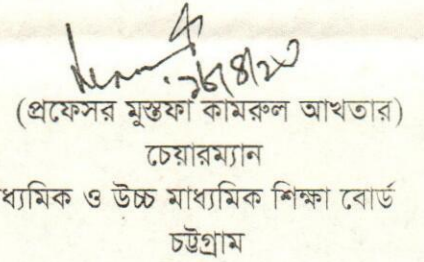 (প্রফেসর মুস্তফা কামরুল আখতার)
চেয়ারম্যান
ধ্যমিক ও উচ্চ মাধ্যমিক শিক্ষা বোর্ড
চট্টগ্রাম